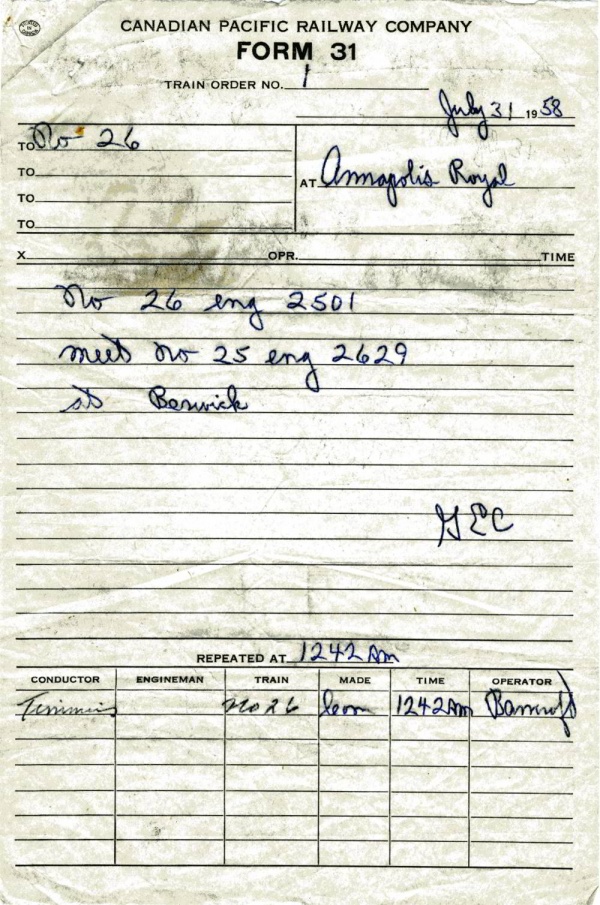 CANADIAN PACIFIC RAILWAY COMPANY
FORM 31
TRAIN ORDER NO. 1
July 31 1958
TO No 26
TO
AT Annapolis Royal
TO
TO
X OPR. TIME
No 26 eng 2501
meet No 25 eng 2629
at Berwick
GEC
REPEATED AT 1242 Am
CONDUCTOR ENGINEMAN TRAIN MADE TIME OPERATOR
Timmins No 26 com 1242 Am Bancroft